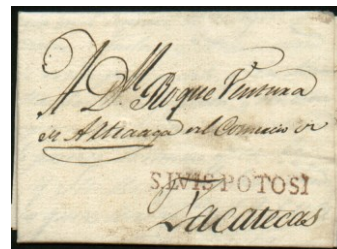 A Dn Roque Ventura
de Arteaga del Comercio de
S.LVIS POTOSI
Zacatecas